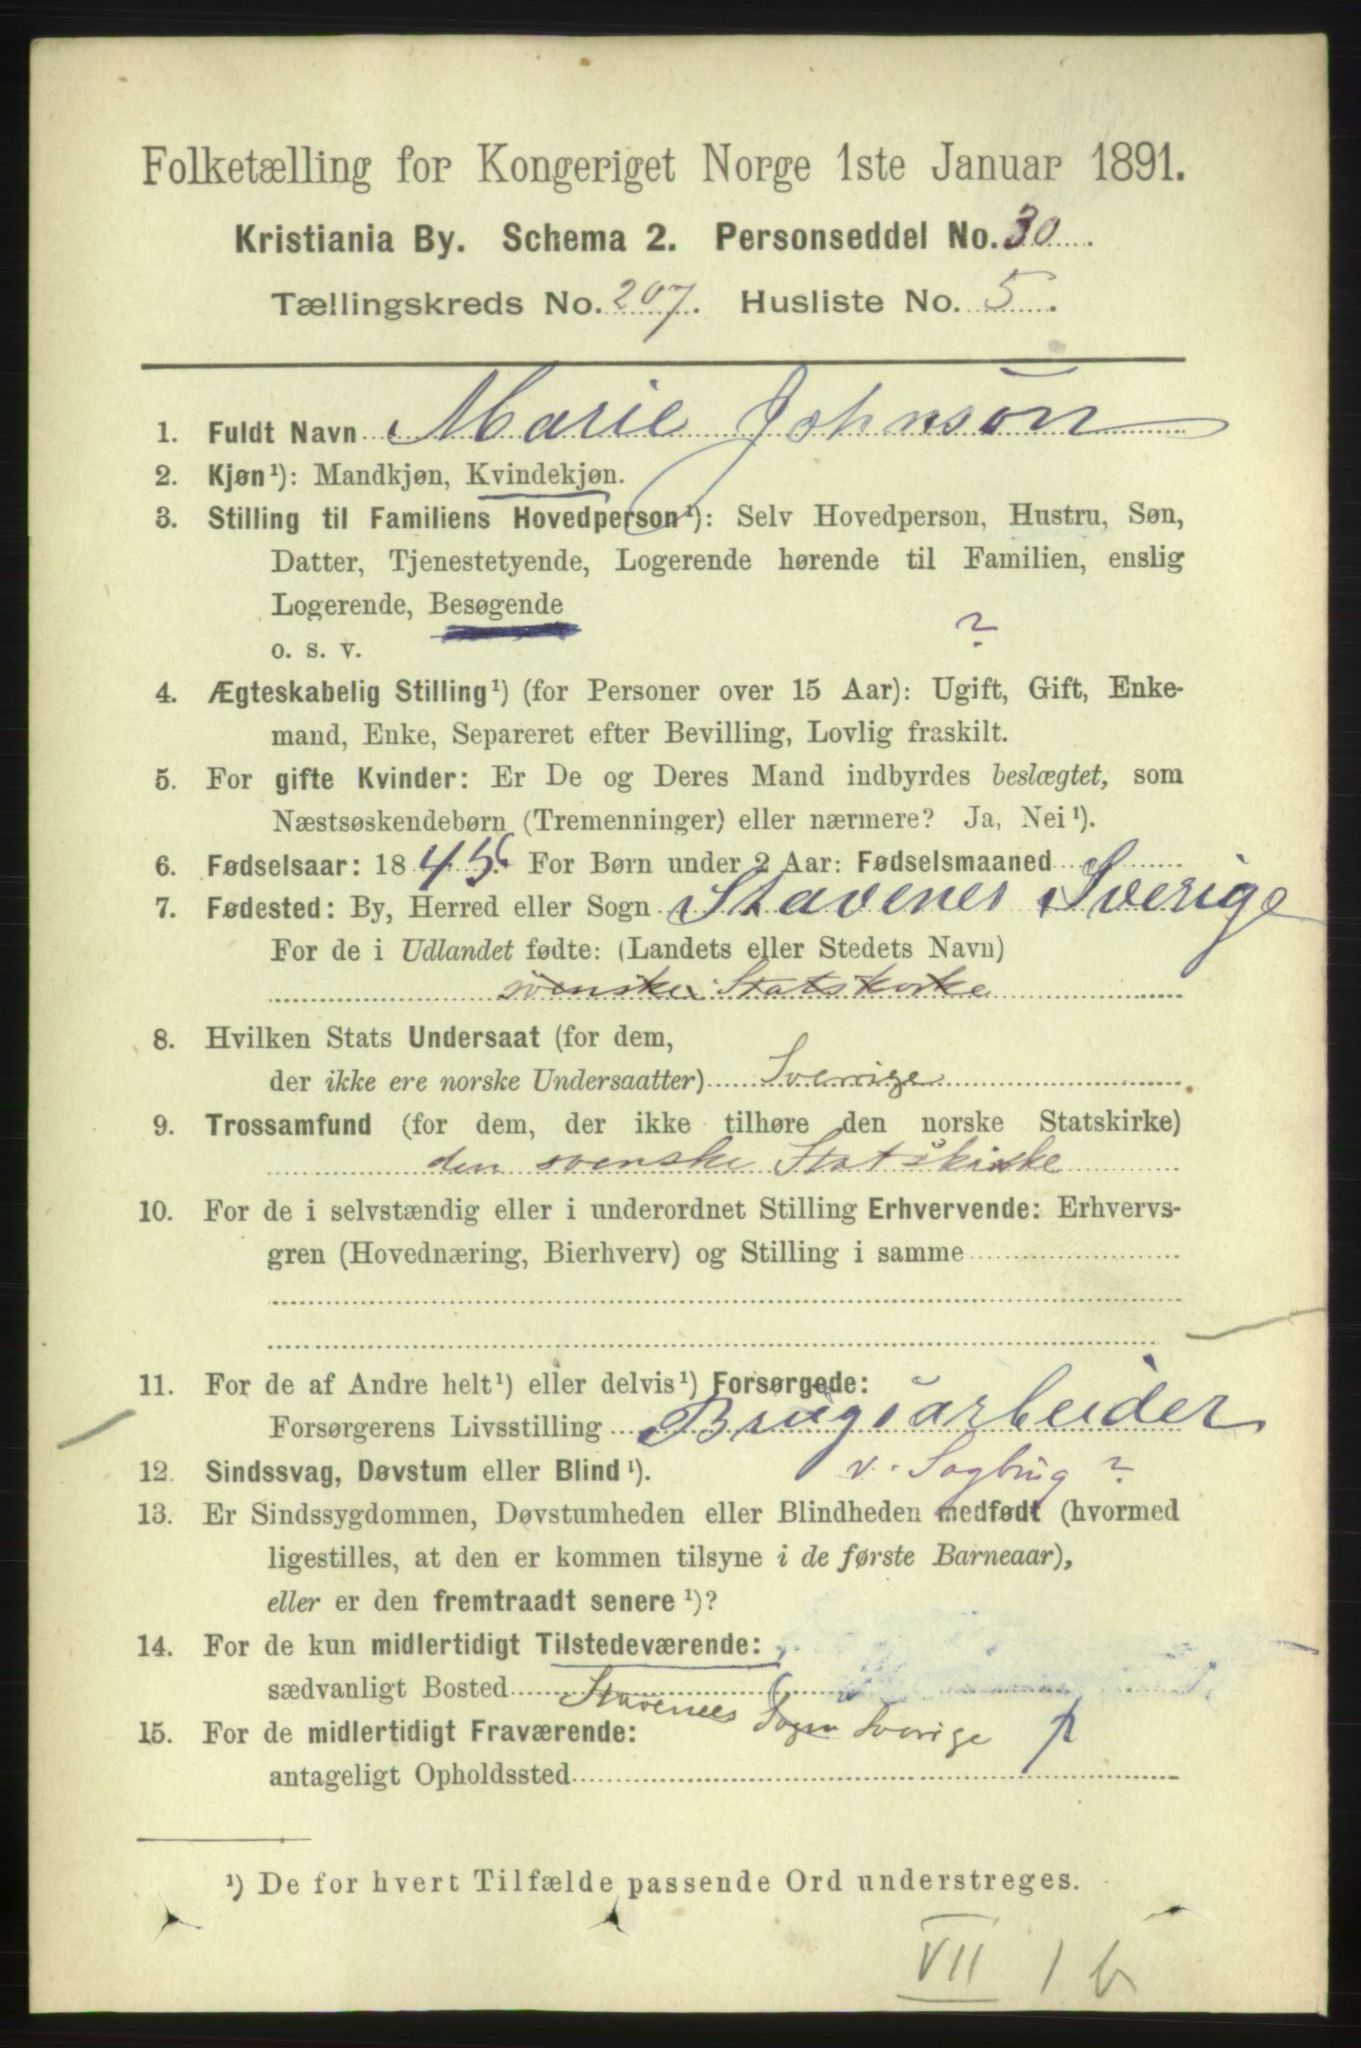 Folketælling for Kongeriget Norge 1ste Januar 1891.
Kristiania By. Schema 2. Personseddel No. 30.
Tællingskreds No. 207. Husliste No. 5.
1. Fuldt Navn Marie Johnson
2. Kjøn¹): Mandkjøn, Kvindekjøn.
3. Stilling til Familiens Hovedperson¹): Selv Hovedperson, Hustru, Søn,
Datter, Tjenestetyende, Logerende hørende til Familien, enslig
Logerende, Besøgende
o. s. v.
?
4. Ægteskabelig Stilling¹) (for Personer over 15 Aar): Ugift, Gift, Enke-
mand, Enke, Separeret efter Bevilling, Lovlig fraskilt.
5. For gifte Kvinder: Er De og Deres Mand indbyrdes beslægtet, som
Næstsøskendebørn (Tremenninger) eller nærmere? Ja, Nei¹).
6. Fødselsaar: 1845. For Børn under 2 Aar: Fødselsmaaned
7. Fødested: By, Herred eller Sogn Stavenes Sverige
For de i Udlandet fødte: (Landets eller Stedets Navn)
svenske Statskirke
8. Hvilken Stats Undersaat (for dem,
der ikke ere norske Undersaatter) Sverrige
9. Trossamfund (for dem, der ikke tilhøre den norske Statskirke)
den svenske Statskirke
10. For de i selvstændig eller i underordnet Stilling Erhvervende: Erhvervs-
gren (Hovednæring, Bierhverv) og Stilling i samme
11. For de af Andre helt¹) eller delvis¹) Forsørgede:
Forsørgerens Livsstilling Brugsarbeider
12. Sindssvag, Døvstum eller Blind¹). v. Sagbrug ?
13. Er Sindssygdommen, Døvstumheden eller Blindheden medfødt (hvormed
ligestilles, at den er kommen tilsyne i de første Barneaar),
eller er den fremtraadt senere¹)?
14. For de kun midlertidigt Tilstedeværende:
sædvanligt Bosted Stavenes Sogn Sverige
15. For de midlertidigt Fraværende:
antageligt Opholdssted
¹) De for hvert Tilfælde passende Ord understreges.
VII 1 b